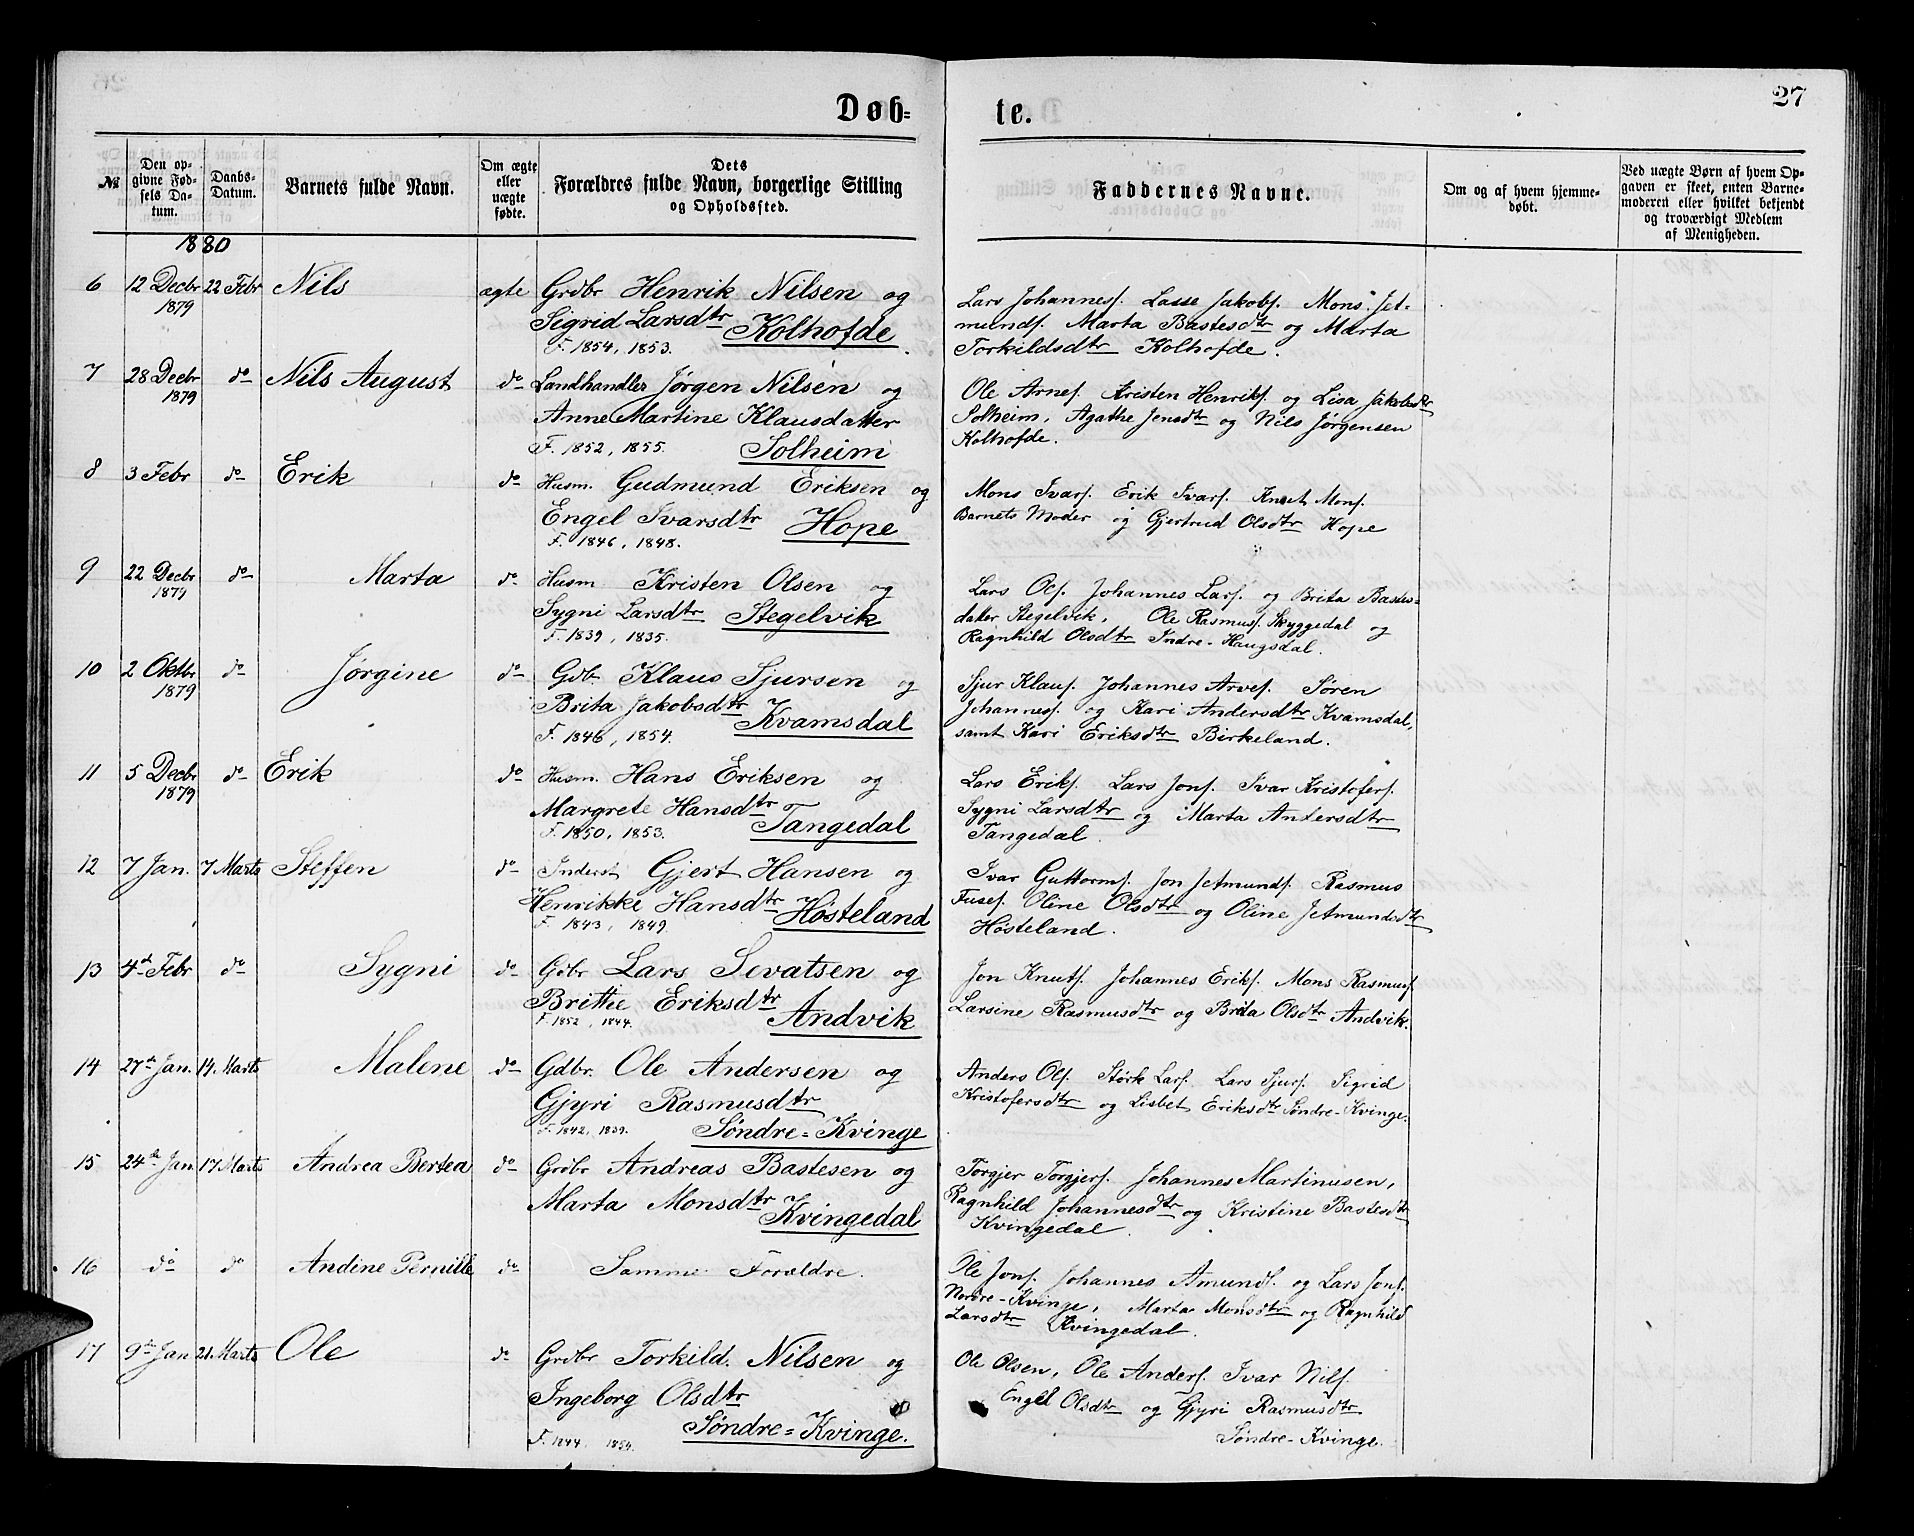 Døb-
te.
27
№
Den op-
givne Fød-
sels Da-
tum.
Daabs-
Datum.
Barnets fulde Navn.
Om ægte
eller
uægte
fødte.
Dets
Forældres fulde Navn, borgerlige Stilling
og Opholdssted.
Faddernes Navne.
Om og af hvem hjemme-
døbt.
Ved uægte Børn af hvem Op-
gaven er skeet, enten Barne-
moderen eller hvilket bekjendt
og troværdigt Medlem
af Menigheden.
1880
6 12 Decbr 22 Febr Nils ægte Grdbr Henrik Nilsen og
1879 Sigrid Larsdtr Kolhofde
F. 1854, 1853.
Lars Johannesf. Lasse Jakobf. Mons Jet-
mundf. Marta Bastesdtr og Marta
Torkildsdtr Kolhofde.
7 28 Decbr do Nils August do Landhandler Jørgen Nilsen og
1879 Anne Martine Klausdatter
F. 1852, 1855. Solheim
Ole Arnef. Kristen Henrikf. og Lisa Jakobsdtr
Solheim, Agathe Jensdtr og Nils Jørgensen
Kolhofde.
8 3 Febr do Erik do Husm. Gudmund Eriksen og
Engel Ivarsdtr Hope
F. 1846, 1848.
Mons Ivarf. Erik Ivarf. Knut Monf.
Barnets Moder og Gjertrud Olsdtr Hope
9 22 Decbr do Marta do Husm Kristen Olsen og
1879 Sygni Larsdtr Stegelvik
F. 1839, 1835.
Lars Olf. Johannes Larf. og Brita Bastes-
datter Stegelvik, Ole Rasmusf. Skyggedal og
Ragnhild Olsdtr Indre-Haugsdal.
10 2 Oktbr do Jørgine do Gdb. Klaus Sjursen og
1879 Brita Jakobsdtr Kvamsdal
F. 1846, 1854.
Sjur Klausf. Johannes Arvef. Søren
Johannesf. og Kari Andersdtr Kvamsdal,
samt Kari Eriksdtr Birkeland.
11 5 Decbr do Erik do Husm. Hans Eriksen og
1879 Margrete Hansdtr Tangedal
F. 1850, 1853.
Lars Erikf. Lars Jonf. Ivar Kristoferf.
Sygni Larsdtr og Marta Andersdtr
Tangedal.
12 7 Jan. 7 Marts Steffen do Inderst Gjert Hansen og
Henrikke Hansdtr Hosteland
F. 1843, 1849.
Ivar Guttormf. Jon Jetmundf. Rasmus
Fusef. Oline Olsdtr og Oline Jetmundsdtr
Hosteland.
13 4de Febr do Sygni do Gdbr Lars Sevatsen og
Brithe Eriksdtr Andvik
F. 1852, 1844.
Jon Knutf. Johannes Erikf. Mons Rasmusf.
Larsine Rasmusdtr og Brita Olsdtr Andvik.
14 27de Jan. 14. Marts Malene do Gdbr. Ole Andersen og
Gjyri Rasmusdtr
F. 1842, 1839. Søndre-Kvinge
Anders Olf. Størk Larf. Lars Sjurf. Sigrid
Kristofersdtr og Lisbet Eriksdtr Søndre-Kvinge.
15 24de Jan 17 Marts Andrea Bertea do Grdbr Andreas Bastesen og
Marta Monsdtr Kvingedal
Torgjer Torgjerf. Johannes Martinusen,
Ragnhild Johannesdtr og Kristine Bastesdtr
Kvingedal.
16 do do Andine Pernille do Samme Forældre.
Ole Jonf. Johannes Amundf. og Lars Jonf.
Nordre-Kvinge, Marta Monsdtr og Ragnhild
Larsdtr Kvingedal.
17 9de Jan 21. Marts Ole do Grdbr Torkild. Nilsen og
Ingeborg Olsdtr
F. 1844, 1854. Søndre-Kvinge.
Ole Olsen, Ole Andersf. Ivar Nilsf.
Engel Olsdtr og Gjyri Rasmusdtr
Søndre-Kvinge.